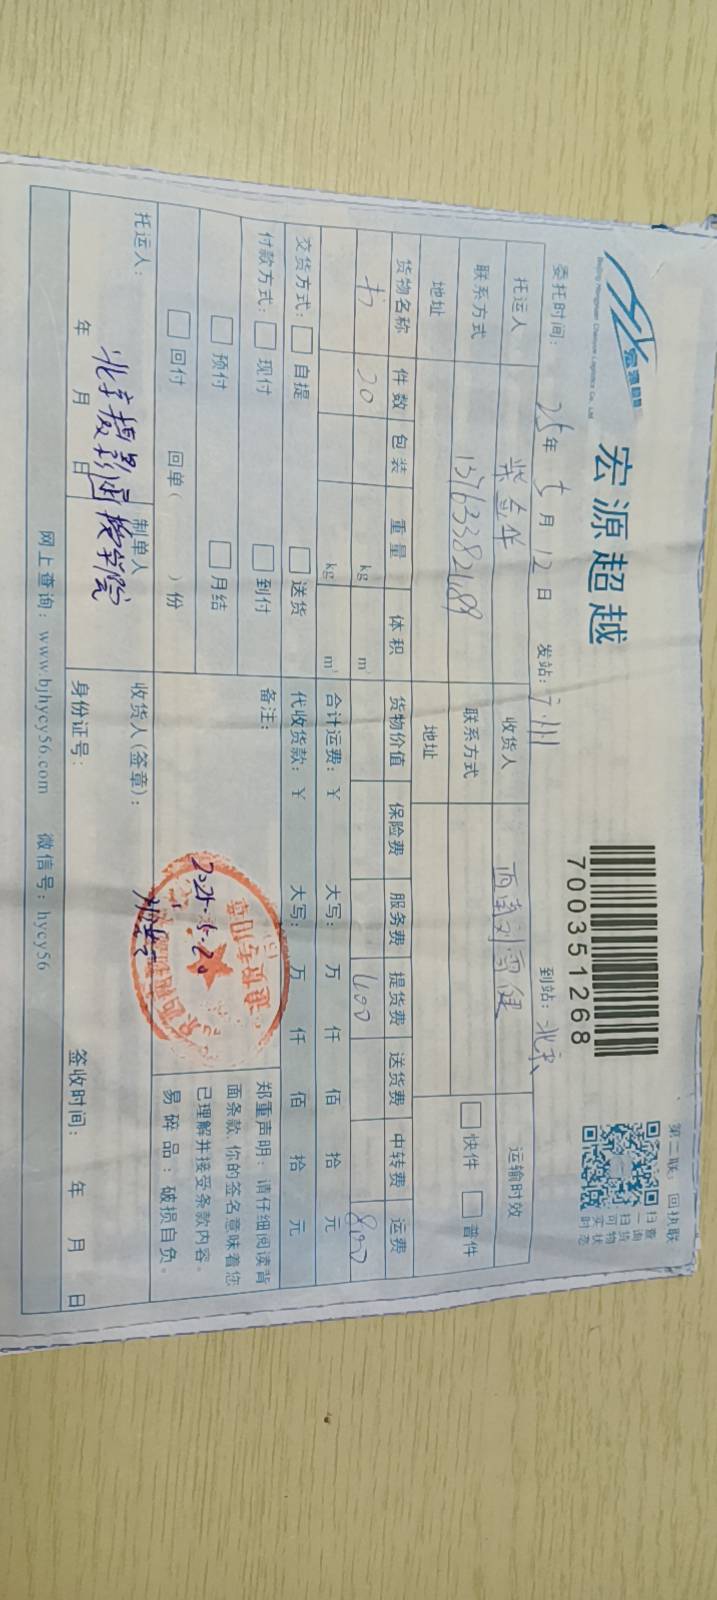 第二联：回执联
宏源超越
Beijing Hongyuan Chaoyue Logistics Co., Ltd
宏源超越
7 0 0 3 5 1 2 6 8
扫一扫
查询货物
实时状态
委托时间： 25 年 5 月 12 日 发站： 到站：北京
托运人 收货人 运输时效
联系方式 联系方式 快件 普件
地址 地址
货物名称 件数 包装 重量 体积 货物价值 保险费 服务费 提货费 送货费 中转费 运费
书 20 kg m³ 400 800
kg m³ 合计运费：￥ 大写： 万 仟 佰 拾 元
交货方式： 自提 送货 代收货款：￥ 大写： 万 仟 佰 拾 元
付款方式： 现付 到付 备注：
预付 月结
回付 回单（ ）份
2025.5.20
郑重声明：请仔细阅读背
面条款，你的签名意味着您
已理解并接受条款内容。
易碎品：破损自负。
托运人： 制单人 收货人(签章)：
北京摄影函授学院
年 月 日 身份证号： 签收时间： 年 月 日
网上查询：www.bjhycy56.com 微信号：hycy56